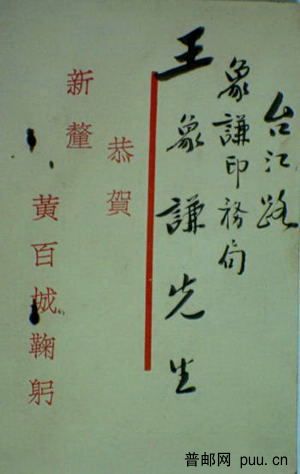 台江路
象謙印务局
王象謙先生
恭賀
新釐
黃百城鞠躬
普邮网 puu.cn